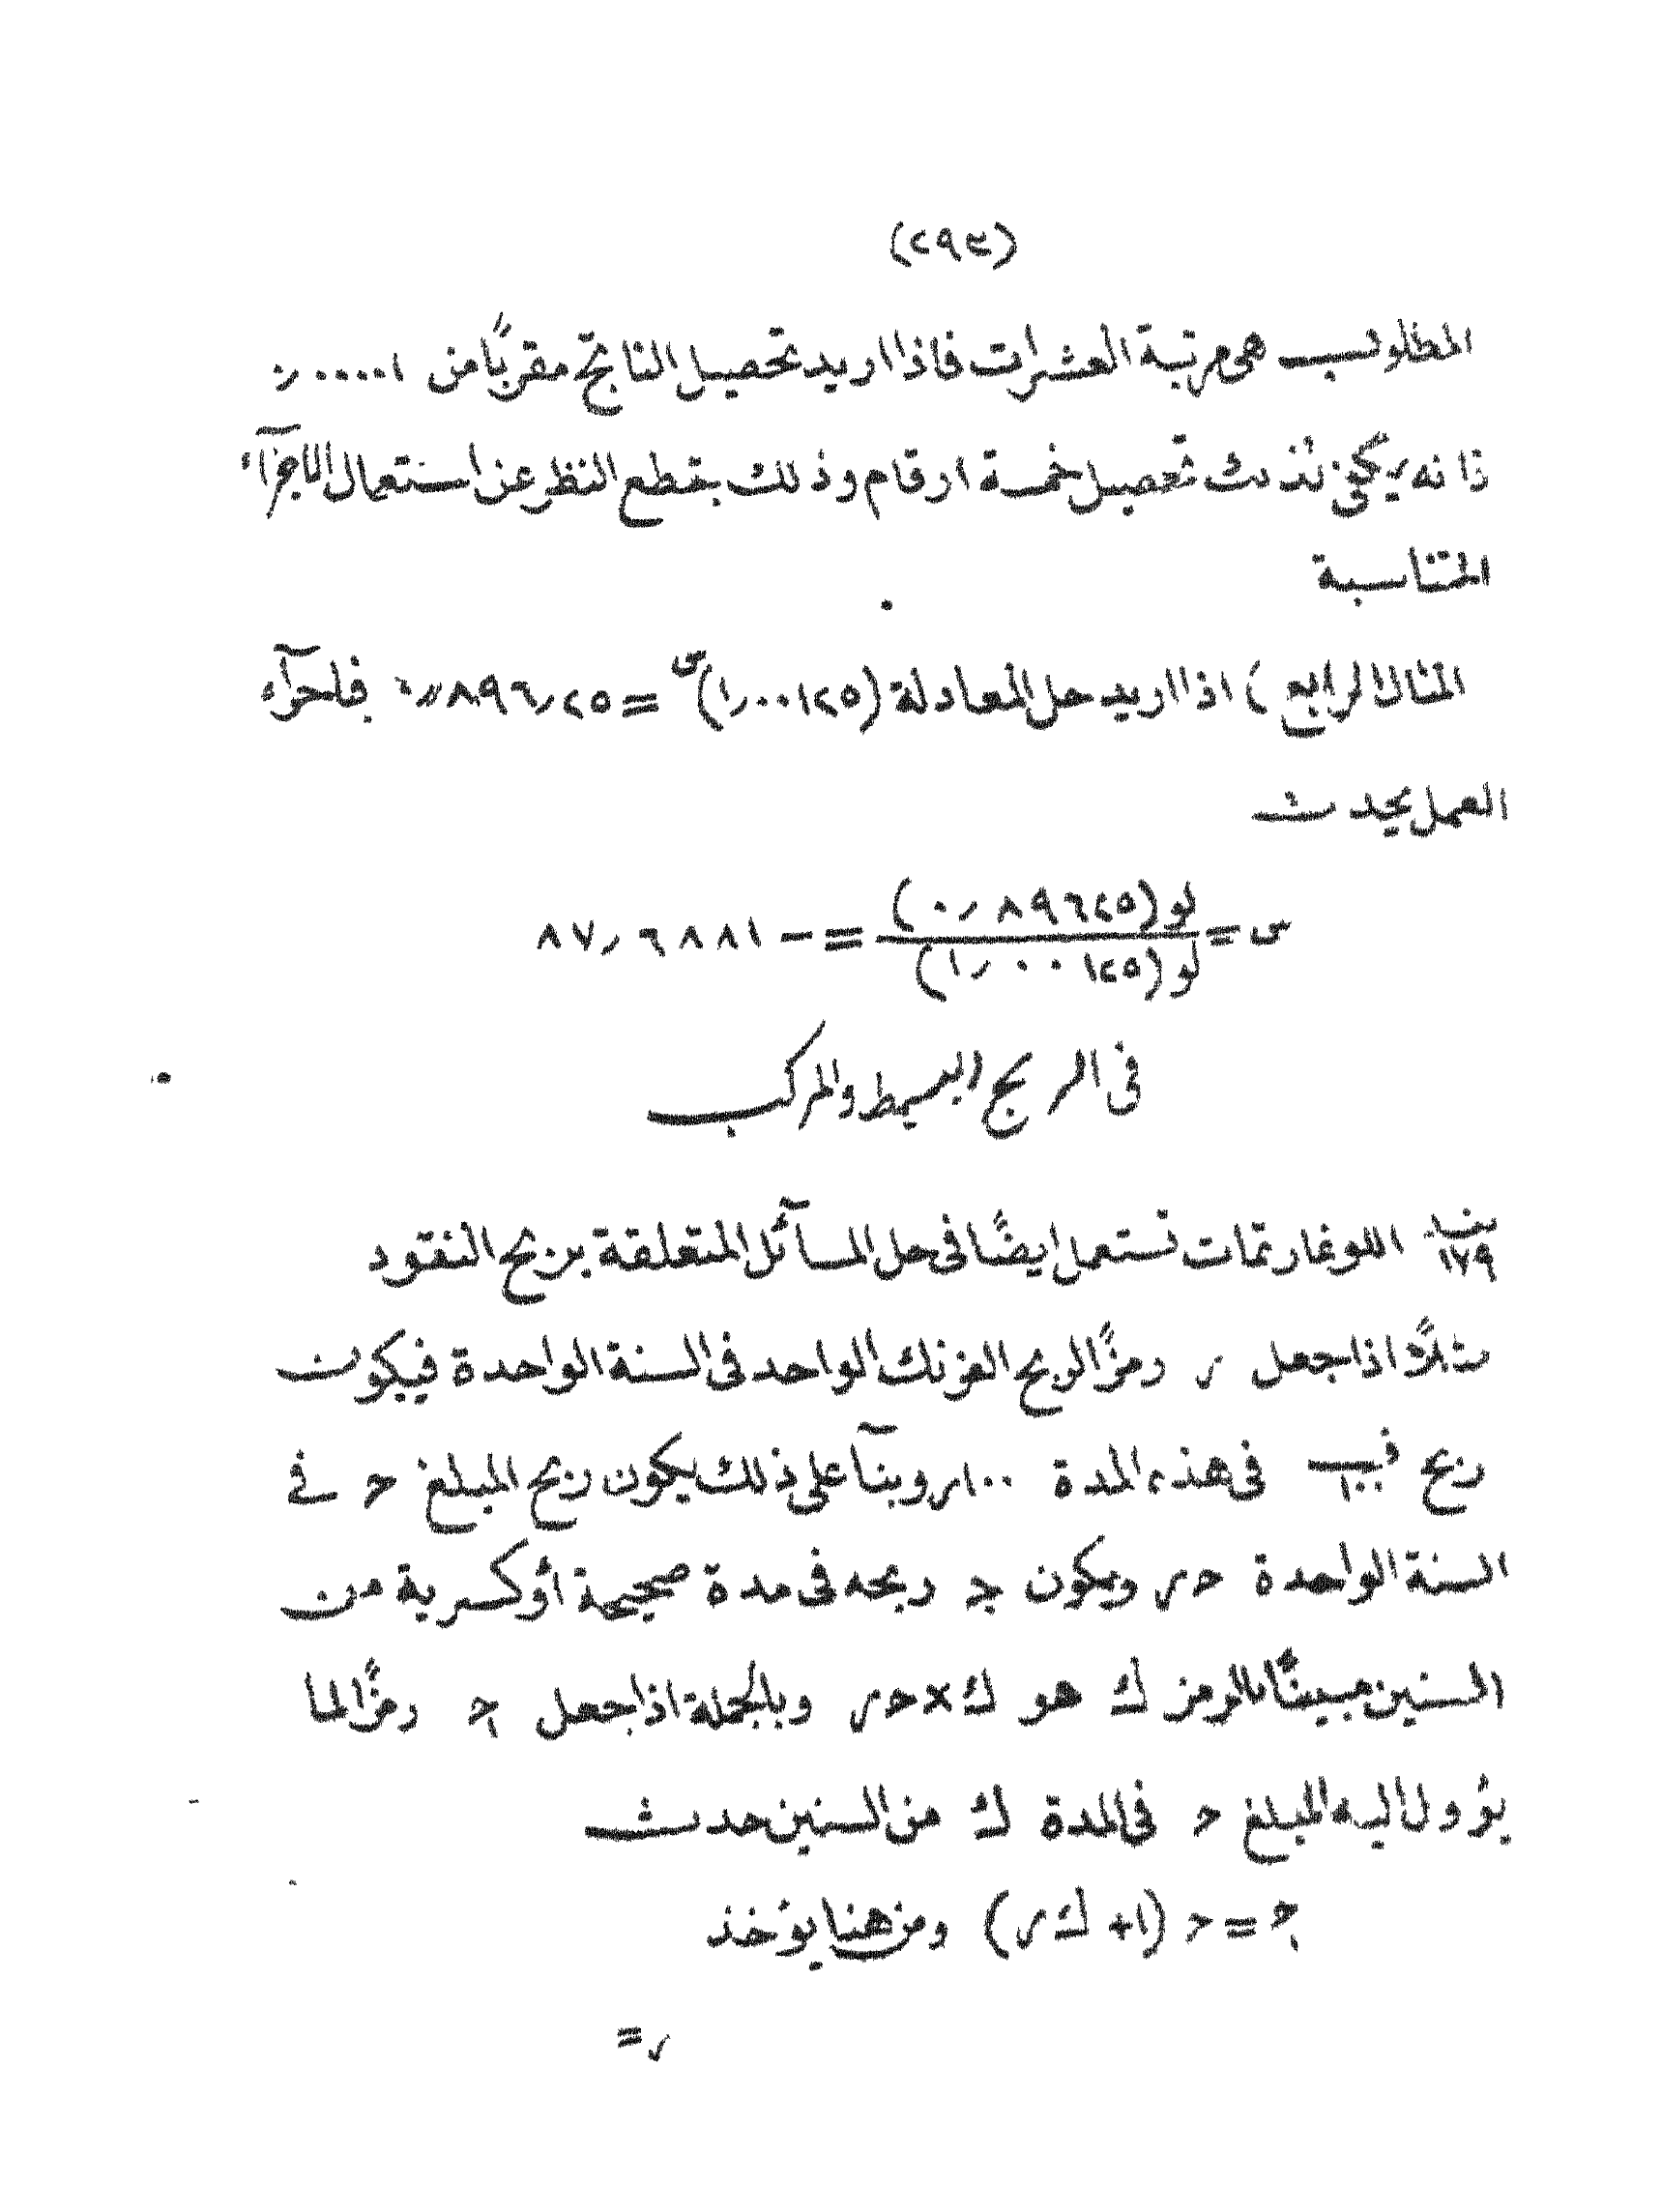 (٢٩٤)
المطلوب هى مرتبة العشرات فاذا اريد تحصيل الناتج مقربًا من ٠٫٠٠٠٠١
فانه يكفى لذلك تحصيل خمسة ارقام وذلك بقطع النظر عن استعمال الاجزآء
المتناسبة
المثال الرابع ) اذا اريد حل المعادلة (١٫٠٠١٢٥)س = ٠٫٨٩٦٢٥ فاجرآء
العمل يحدث
س = لو(٠٫٨٩٦٢٥) / لو(١٫٠٠١٢٥) = − ٨٧٫٦٨٨١
فى الربح البسيط والمركب
بند ١٧٩ اللوغارتمات تستعمل ايضًا فى حل المسآئل المتعلقة بربح النقود
مثلاً اذا جعل ر رمزًا لربح الفرنك الواحد فى السنة الواحدة فيكون
ربح فى هذه المدة ١٠٠ر وبنآ على ذلك يكون ربح المبلغ ح فى
السنة الواحدة ح ر ويكون ربحه فى مدة صحيحة أوكسرية من
السنين مبينًا بالرمز ك هو ك×ح ر وبالجملة اذا جعل رمزًا لما
يؤول اليه المبلغ ح فى المدة ك من السنين حدث
جـ = ح (١+ ك ر) ومن هنا يؤخذ
ر =